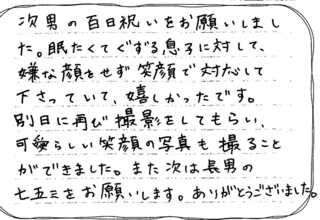 次男の百日祝いをお願いしまし
た。眠たくてぐずる息子に対して、
嫌な顔をせず笑顔で対応して
下さっていて、嬉しかったです。
別日に再び撮影をしてもらい、
可愛らしい笑顔の写真も撮ること
ができました。また次は長男の
七五三をお願いします。ありがとうございました。